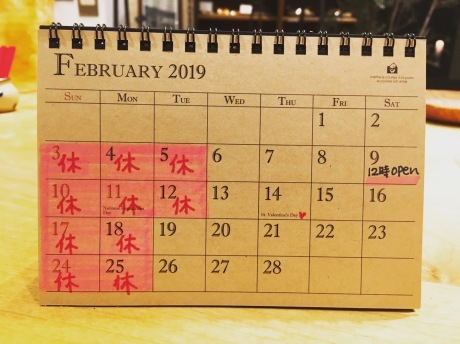 FEBRUARY 2019
SUN MON TUE WED THU FRI SAT
1 2
3 休 4 休 5 休 6 7 8 9 12時open
10 休 11 休 12 休 13 14 15 16
St. Valentine's Day
17 休 18 休 19 20 21 22 23
24 休 25 休 26 27 28